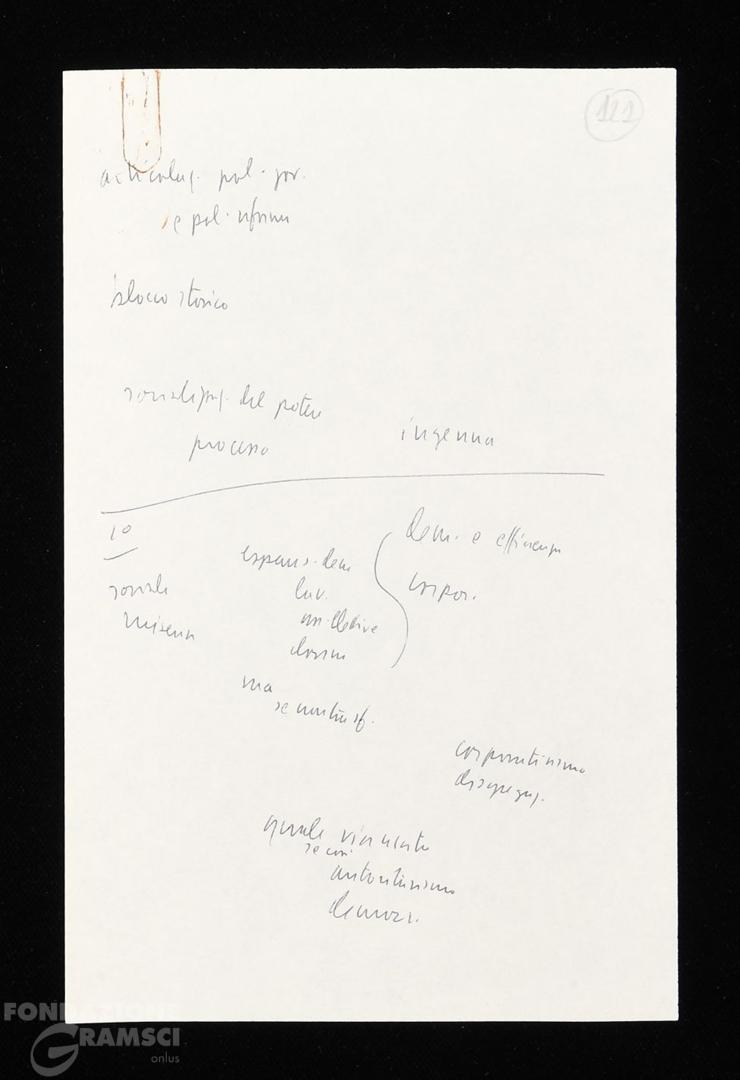 121
articolaz. pol. gov.
e pol. riforma
blocco storico
socializzaz. del potere
processo
ingenua
1°
sociale
miseria
espans. dem
lav.
ass. elettive
classi
dem. e efficienza
corpor.
ma
se
corporativismo
disgregaz.
quale
se così
autoritarismo
democr.
FONDAZIONE
GRAMSCI
onlus